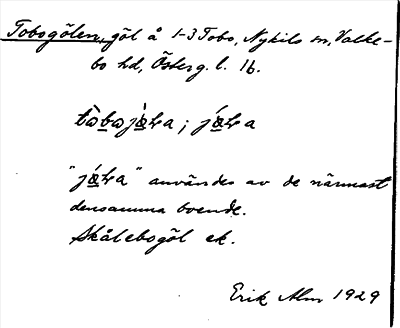 Tobogölen, göl å 1-3 Tobo, Nykils sn, Valke-
bo hd, Österg. l. 16.
"
" användes av de närmast
densamma boende.
Skålebogöl ek.
Erik Alm 1929